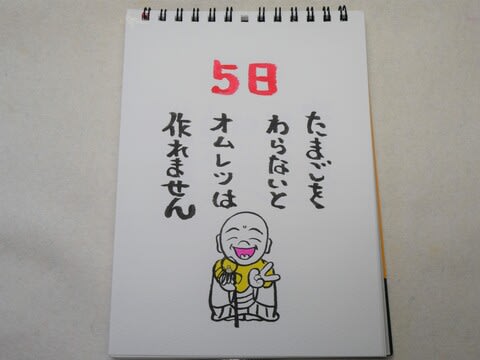 5日
たまごを
わらないと
オムレツは
作れません